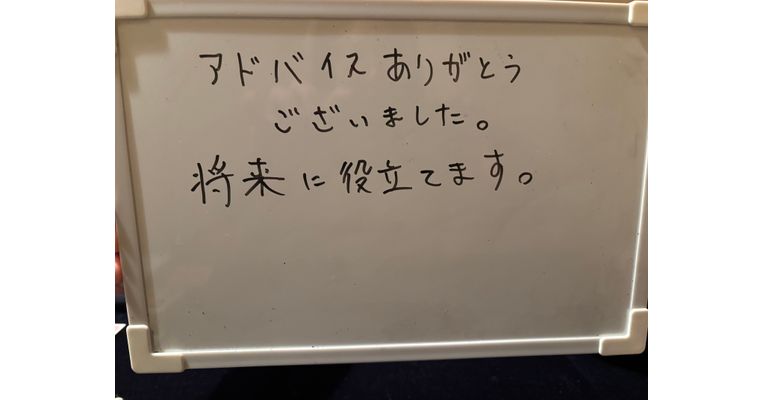 アドバイスありがとう
ございました。
将来に役立てます。